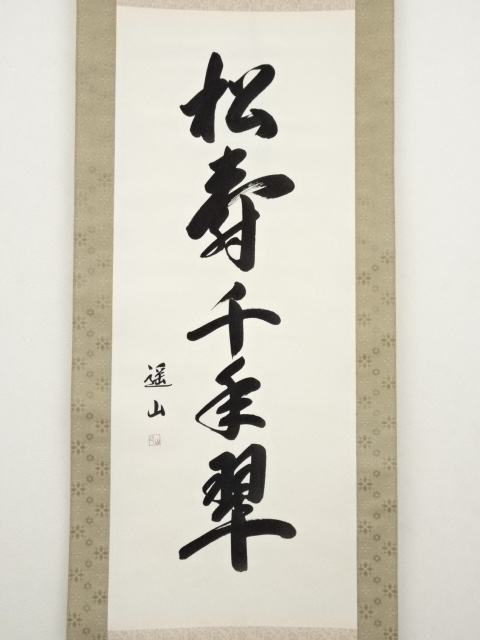 松寿千年翠
遥山